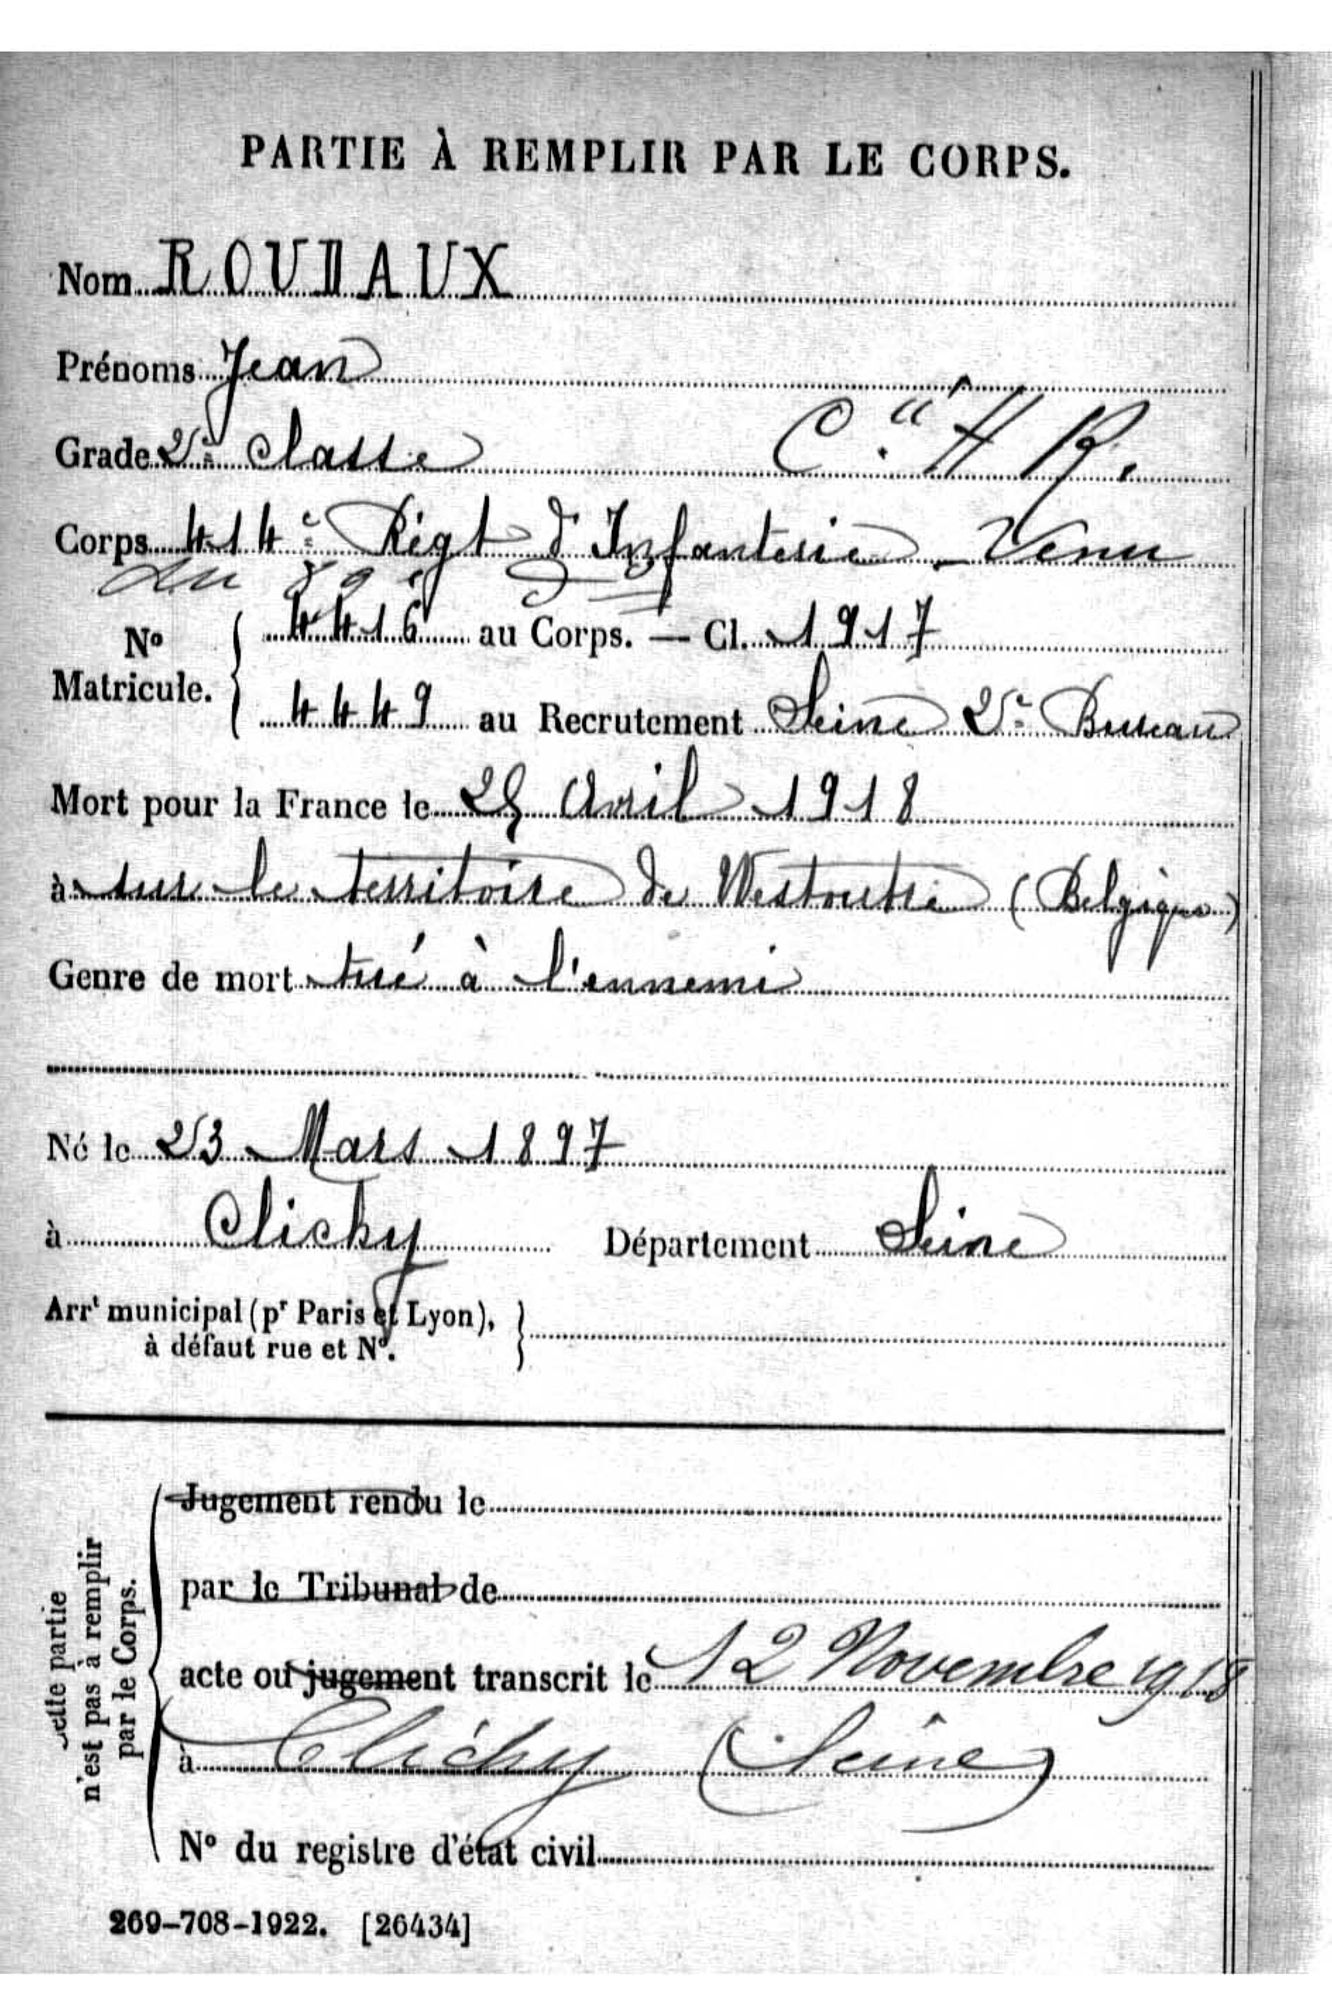 PARTIE À REMPLIR PAR LE CORPS.
Nom ROUDAUX
Prénoms Jean
Grade 2e classe Cie H R.
Corps 414e Régt d'Infanterie - Venu
du 89e
No Matricule. 4416 au Corps. — Cl. 1917
4449 au Recrutement Seine 2e Bureau
Mort pour la France le 25 Avril 1918
à sur le territoire de Westoutre (Belgique)
Genre de mort tué à l'ennemi
Né le 23 Mars 1897
à Clichy Département Seine
Arrt municipal (pr Paris et Lyon),
à défaut rue et No.
Cette partie
n'est pas à remplir
par le Corps.
Jugement rendu le
par le Tribunal de
acte ou jugement transcrit le 12 Novembre 1918
à Clichy (Seine)
No du registre d'état civil
269-708-1922. [26434]